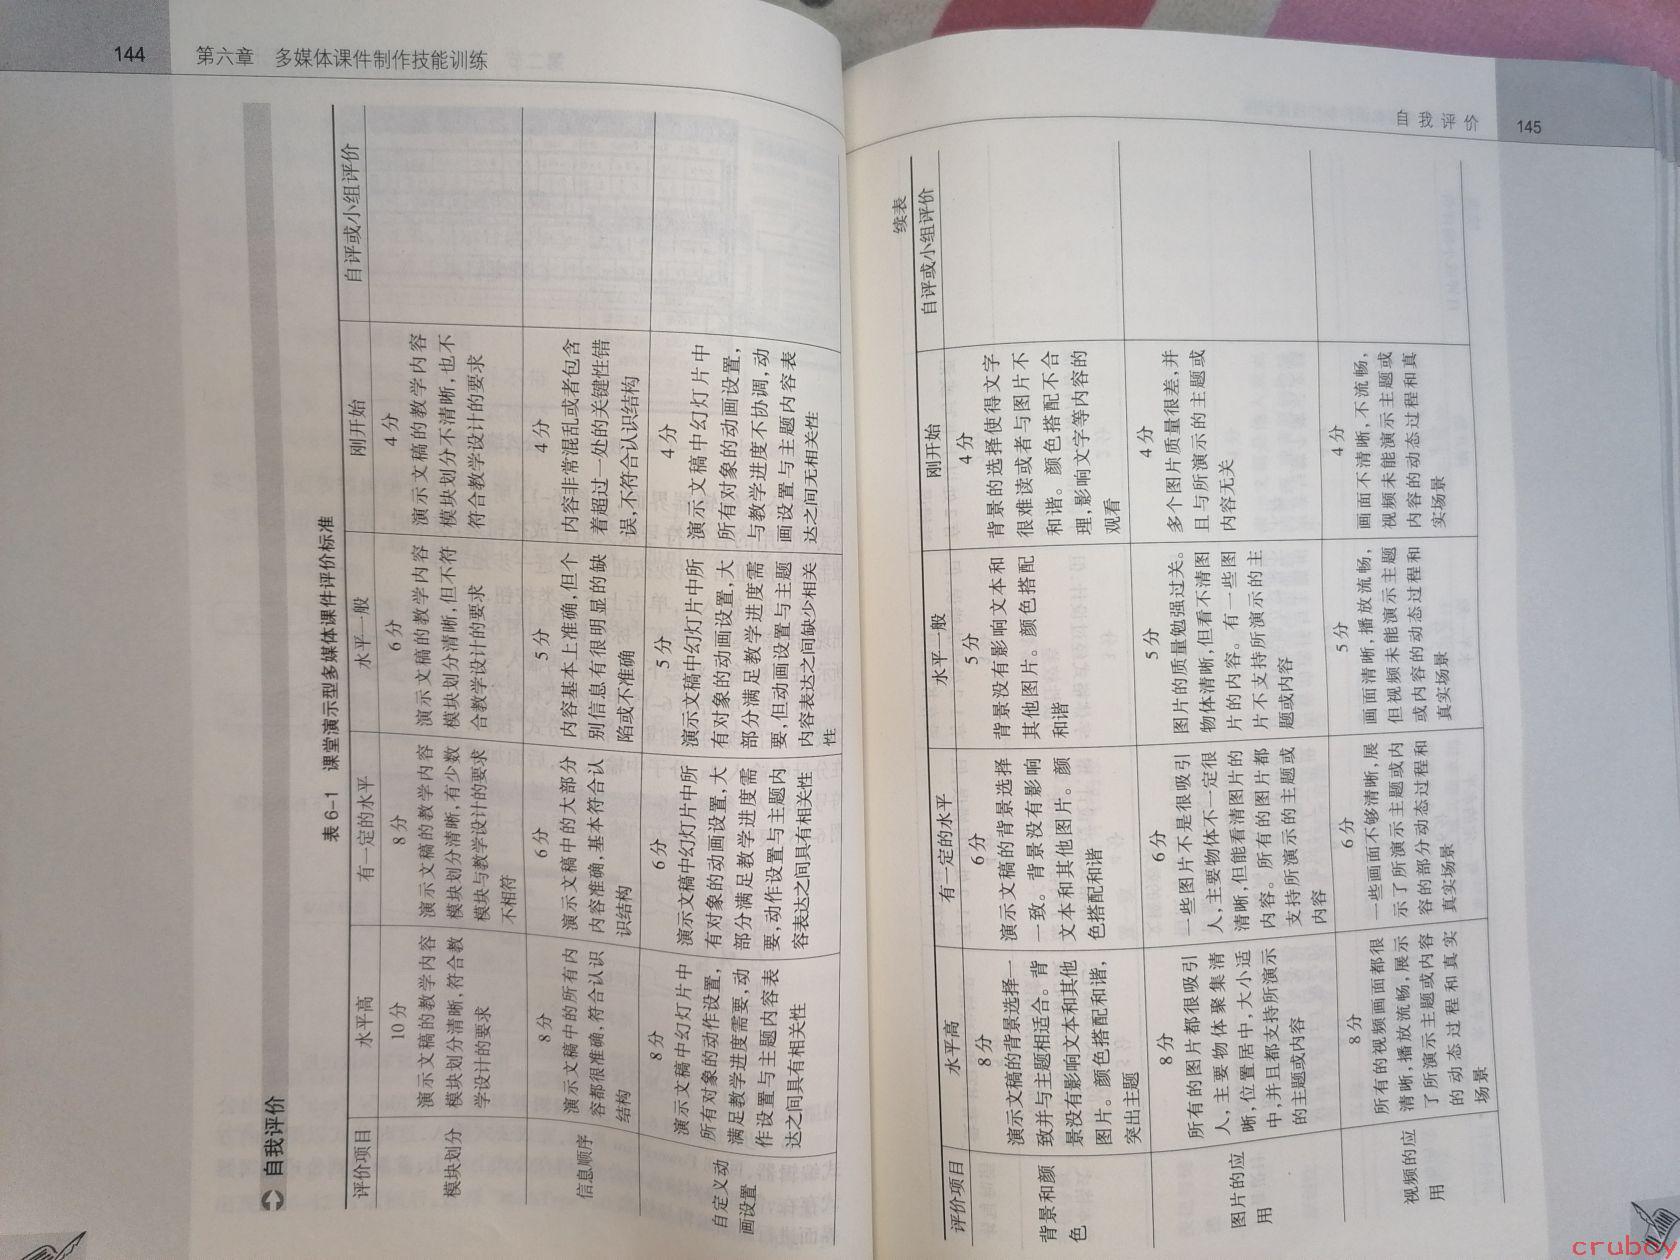 144
第六章 多媒体课件制作技能训练
自我评价
表 6-1 课堂演示型多媒体课件评价标准
评价项目
水平高
有一定的水平
水平一般
刚开始
自评或小组评价
模块划分
10 分
演示文稿的教学内容
模块划分清晰,符合教
学设计的要求
8 分
演示文稿的教学内容
模块划分清晰,有少数
模块与教学设计的要求
不相符
6 分
演示文稿的教学内容
模块划分清晰,但不符
合教学设计的要求
4 分
演示文稿的教学内容
模块划分不清晰,也不
符合教学设计的要求
信息顺序
8 分
演示文稿中的所有内
容都很准确,符合认识
结构
6 分
演示文稿中的大部分
内容准确,基本符合认
识结构
5 分
内容基本上准确,但个
别信息有很明显的缺
陷或不准确
4 分
内容非常混乱或者包含
着超过一处的关键性错
误,不符合认识结构
自定义动
画设置
8 分
演示文稿中幻灯片中
所有对象的动作设置,
满足教学进度需要,动
作设置与主题内容表
达之间具有相关性
6 分
演示文稿中幻灯片中所
有对象的动画设置,大
部分满足教学进度需
要,动作设置与主题内
容表达之间具有相关性
5 分
演示文稿中幻灯片中所
有对象的动画设置,大
部分满足教学进度需
要,但动画设置与主题
内容表达之间缺少相关
性
4 分
演示文稿中幻灯片中
所有对象的动画设置,
与教学进度不协调,动
画设置与主题内容表
达之间无相关性
自我评价
145
续表
评价项目
水平高
有一定的水平
水平一般
刚开始
自评或小组评价
背景和颜
色
8 分
演示文稿的背景选择一
致并与主题相适合。背
景没有影响文本和其他
图片。颜色搭配和谐,
突出主题
6 分
演示文稿的背景选择
一致。背景没有影响
文本和其他图片。颜
色搭配和谐
5 分
背景没有影响文本和
其他图片。颜色搭配
和谐
4 分
背景的选择使得文字
很难读或者与图片不
和谐。颜色搭配不合
理,影响文字等内容的
观看
图片的应
用
8 分
所有的图片都很吸引
人,主要物体聚集清
晰,位置居中,大小适
中,并且都支持所演示
的主题或内容
6 分
一些图片不是很吸引
人,主要物体不一定很
清晰,但能看清图片的
内容。所有的图片都
支持所演示的主题或
内容
5 分
图片的质量勉强过关。
物体清晰,但看不清图
片的内容。有一些图
片不支持所演示的主
题或内容
4 分
多个图片质量很差,并
且与所演示的主题或
内容无关
视频的应
用
8 分
所有的视频画面都很
清晰,播放流畅,展示
了所演示主题或内容
的动态过程和真实
场景
6 分
一些画面不够清晰,展
示了所演示主题或内
容的部分动态过程和
真实场景
5 分
画面清晰,播放流畅,
但视频未能演示主题
或内容的动态过程和
真实场景
4 分
画面不清晰,不流畅,
视频未能演示主题或
内容的动态过程和真
实场景
cruboy